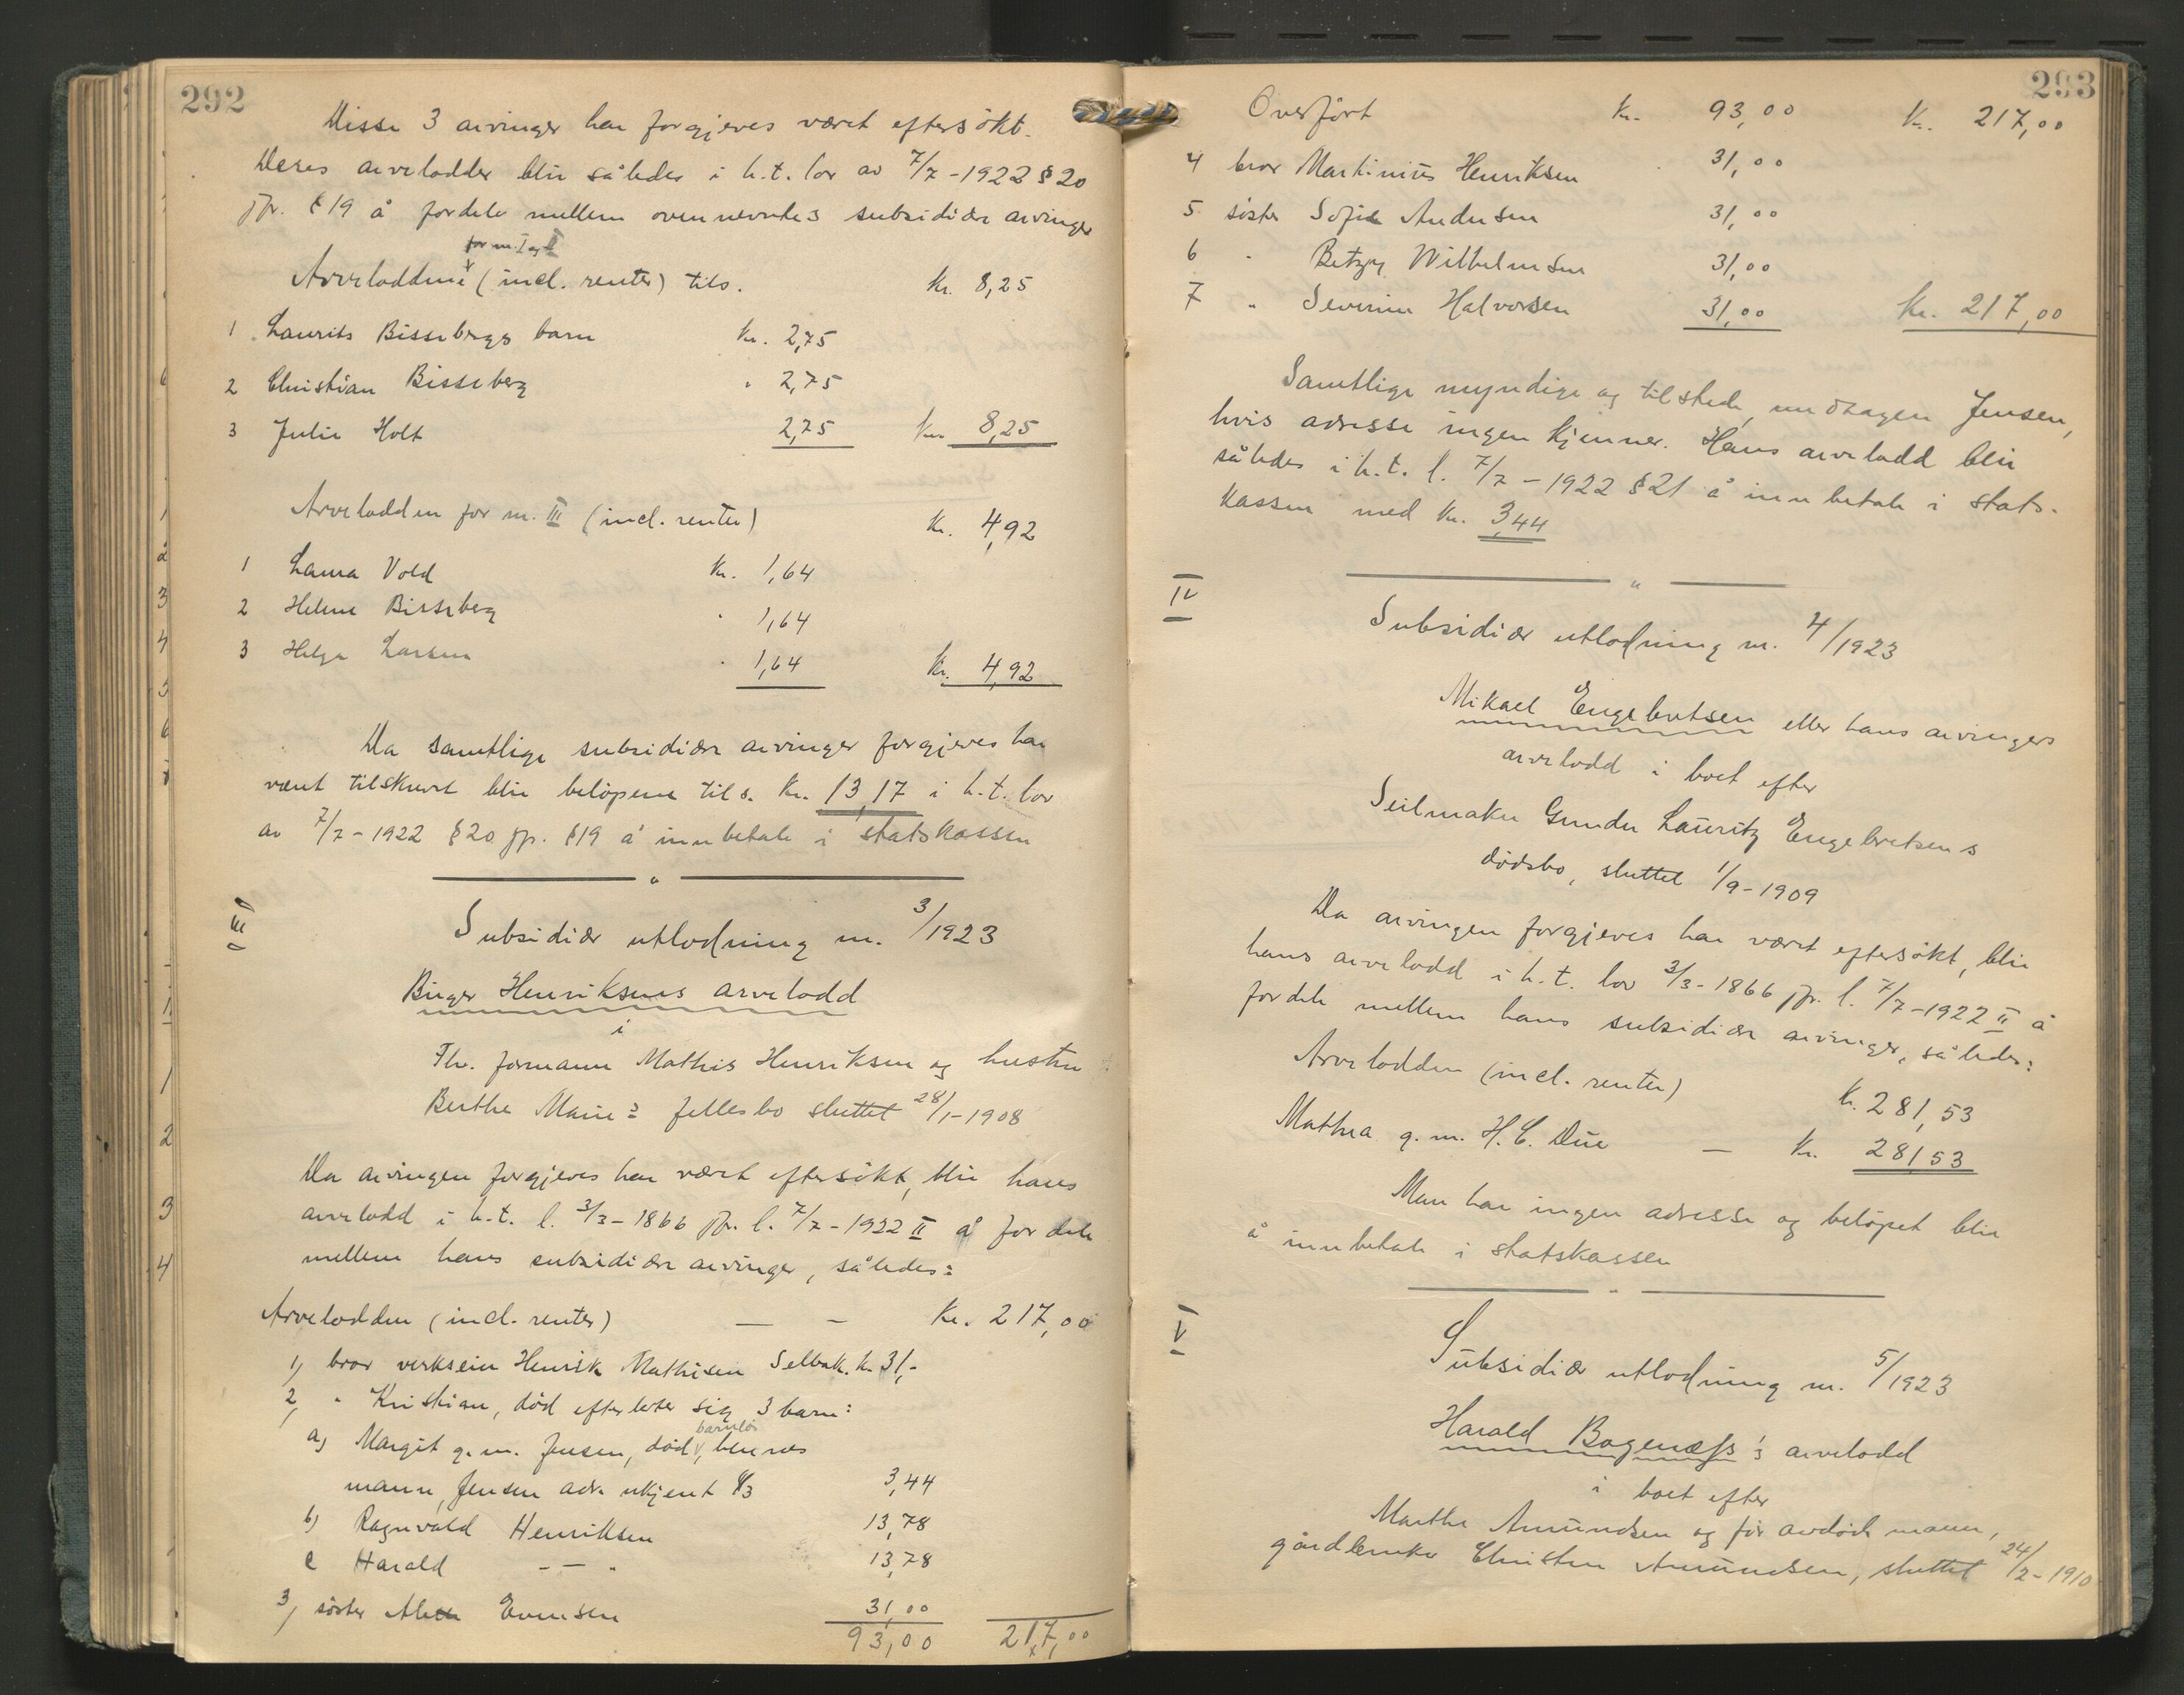 292
Disse 3 arvinger har forgjeves været eftersökt.
Deres arvelodder blir således i h.t. lov av 7/7-1922 § 20
jfr. § 19 å fordele mellem ovennevnte 3 subsidiære arvinger
for nr. I og II
Arveloddene (incl. renter) tils. kr. 8,25
1 Laurits Bissebergs barn kr. 2,75
2 Christian Bisseberg " 2,75
3 Julie Holt 2,75 kr. 8,25
Arvelodden for nr. III (incl. renter) kr. 4,92
1 Laura Vold kr. 1,64
2 Helene Bisseberg " 1,64
3 Helga Larsen " 1,64 kr. 4,92
Da samtlige subsidiære arvinger forgjeves har
vært tilskrevet blir belöpene tils. kr. 13,17 i h.t. lov
av 7/7-1922 § 20 jfr. § 19 å innbetale i statskassen
III)
Subsidiær utlodning nr. 3/1923
Birger Henriksens arvelodd
i
Fhv. formann Mathis Henriksen og hustru
Berthe Marie's fellesbo sluttet 28/1-1908
Da arvingen forgjeves har været eftersökt, blir hans
arvelodd i h.t. l. 3/3-1866 jfr. l. 7/7-1922 II å fordele
mellem hans subsidiære arvinger, således:
Arvelodden (incl. renter) — - kr. 217,00
1) bror verkseier Henrik Mathisen Selbak. kr. 31,-
2, " Kristian, död efterlater sig 3 barn:
barnlös
a) Margit g.m. Jensen, död, hennes
mann, Jensen adr. ukjent 1/3 3,44
b) Ragnvald Henriksen 13,78
c Harald — " 13,78
3) söster Evensen 31,00
93,00 217,00
293
Overfört kr. 93,00 kr. 217,00
4 bror Martinius Henriksen 31,00
5 söster Sofie Andersen 31,00
6 " Betzy Wilhelmsen 31,00
7 " Severine Halvorsen 31,00 kr. 217,00
Samtlige myndige og tilstede, undtagen Jensen,
hvis adresse ingen kjenner. Hans arvelodd blir
således i h.t. l. 7/7-1922 § 21 å innbetale i stats-
kassen med kr. 3,44
IV
Subsidiær utlodning nr. 4/1923
Mikael Engebretsen eller hans arvingers
arvelodd i boet efter
Seilmaker Gunder Lauritz Engebretsens
dödsbo, sluttet 1/9-1909
Da arvingen forgjeves har været eftersökt, blir
hans arvelodd i h.t. lov 3/3-1866 jfr. l. 7/7-1922 II å
fordele mellem hans subsidiære arvinger, således:
Arvelodden (incl. renter) kr. 281,53
Mathea g.m. H.C. Due — kr. 281,53
Man har ingen adresse og belöpet blir
å innbetale i statskassen
V
Subsidiær utlodning nr. 5/1923
Harald Bogenæss's arvelodd
i boet efter
Marthe Amundsen og för avdöde mann,
gårdbruker Christen Amundsen, sluttet 24/2-1910